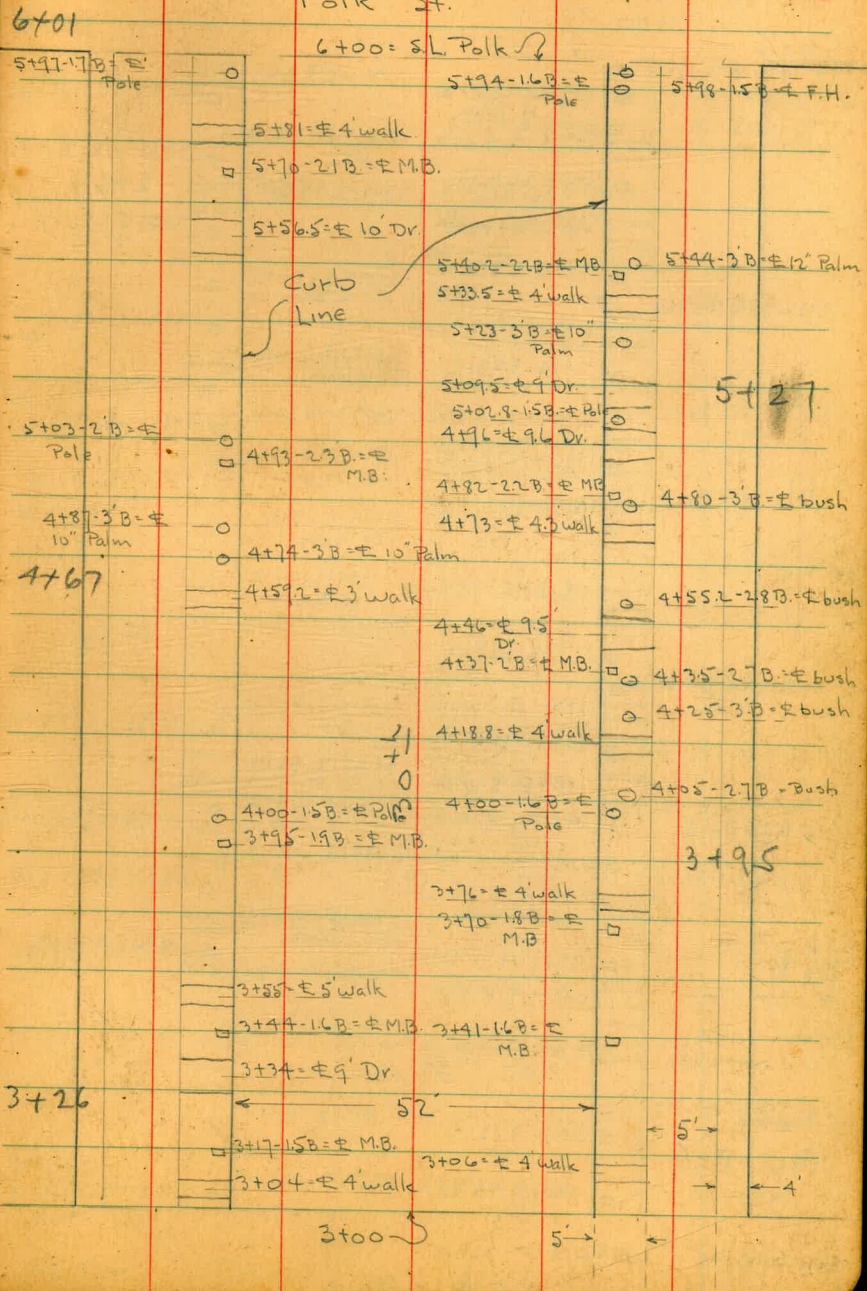 Polk St.
6+01
6+00 = S.L. Polk
5+97-1.7 B = ℄
Pole
5+94-1.6 B = ℄
Pole
5+98-1.5 B = ℄ F.H.
5+81 = ℄ 4' walk
5+70-2.1 B = ℄ M.B.
5+56.5 = ℄ 10' Dr.
5+40.2-2.2 B = ℄ MB
5+44-3' B = ℄ 12" Palm
Curb
Line
5+33.5 = ℄ 4' walk
5+23-3' B = ℄ 10"
Palm
5+09.5 = ℄ 9' Dr.
5+27
5+02.8-1.5 B. = ℄ Pole
5+03-2' B = ℄
Pole
4+96 = ℄ 9.6 Dr.
4+93-2.3 B. = ℄
M.B.
4+82-2.2 B = ℄ MB
4+80-3' B = ℄ bush
4+87-3' B = ℄
10" Palm
4+73 = ℄ 4.3 walk
4+74-3' B = ℄ 10" Palm
4+67
4+59.2 = ℄ 3' walk
4+55.2-2.8 B. = ℄ bush
4+46 = ℄ 9.5'
Dr.
4+37-2' B = ℄ M.B.
4+35-2.7 B. = ℄ bush
4+25-3' B = ℄ bush
4+18.8 = ℄ 4' walk
4+05-2.7 B - Bush
4+00-1.5 B. = ℄ Pole
4+00-1.6 B = ℄
Pole
3+95-1.9 B. = ℄ M.B.
3+95
3+76 = ℄ 4' walk
3+70-1.8 B = ℄
M.B
3+55 - ℄ 5' walk
3+44-1.6 B = ℄ M.B.
3+41-1.6 B = ℄
M.B.
3+34 = ℄ 9' Dr
3+26
52'
5'
3+17-1.5 B = ℄ M.B.
3+06 = ℄ 4' walk
3+04 = ℄ 4' walk
4'
3+00
5'